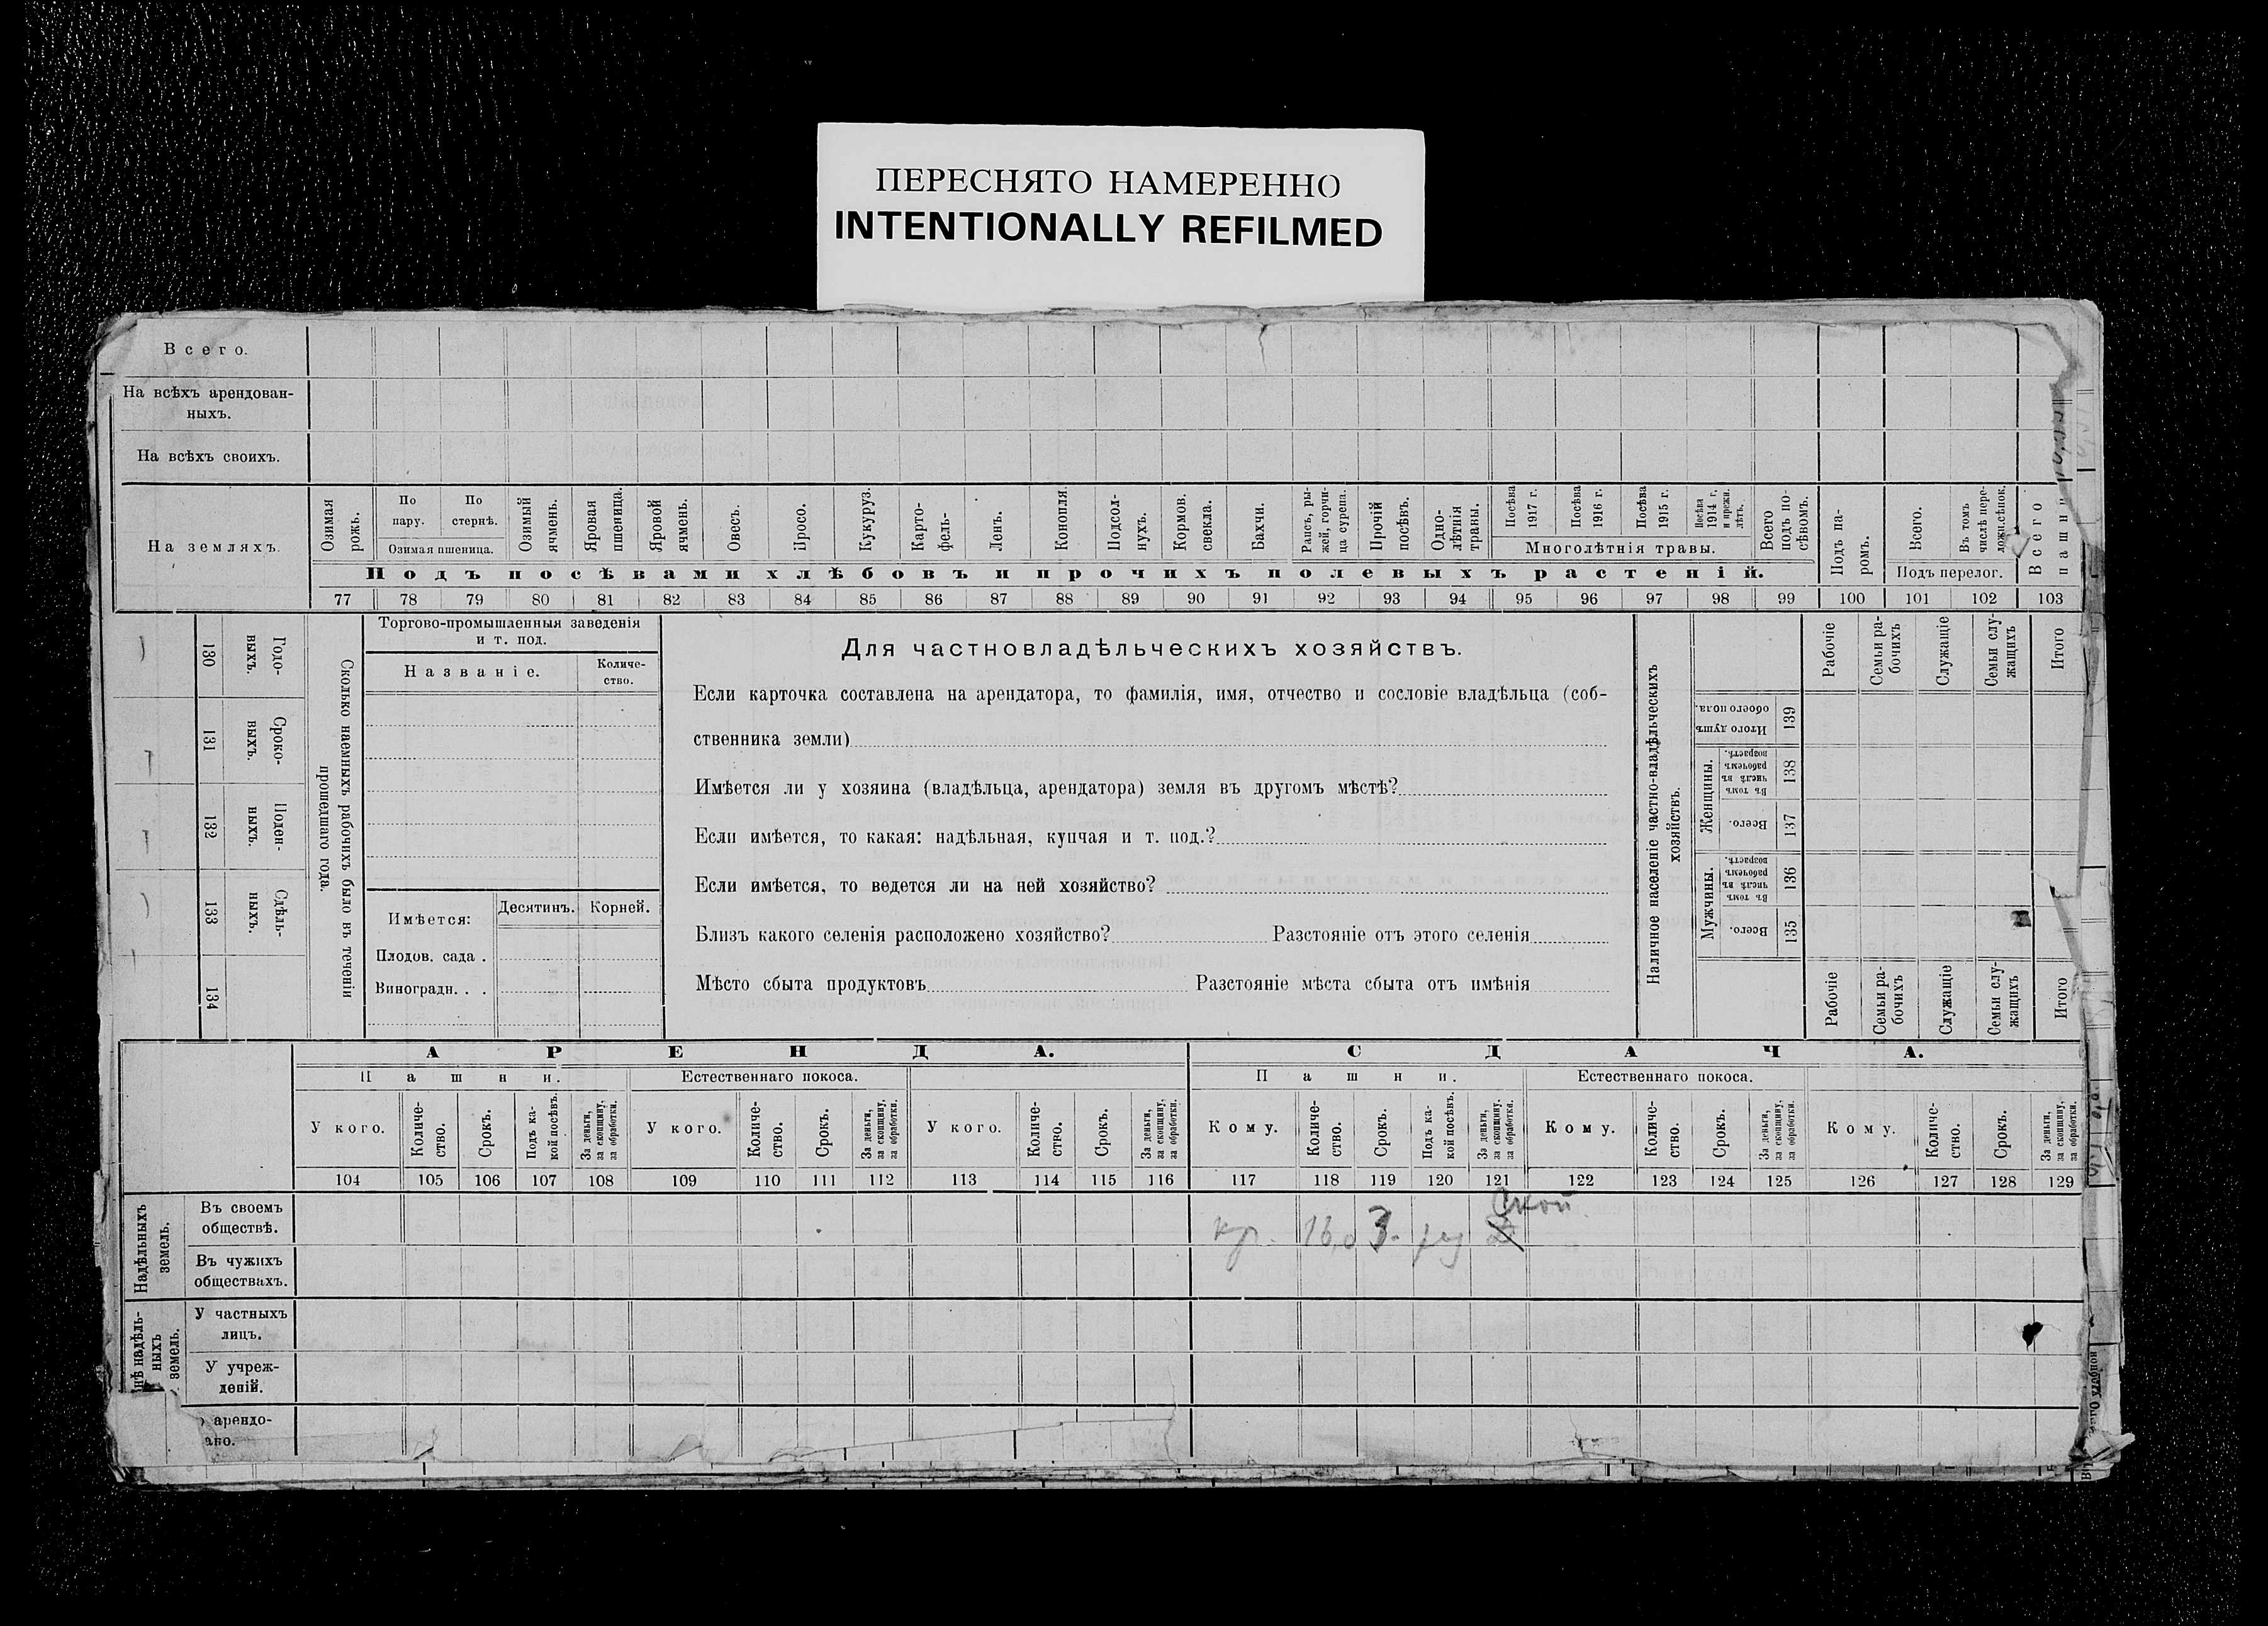 ПЕРЕСНЯТО НАМЕРЕННО
INTENTIONALLY REFILMED
Всего.
На всѣхъ арендован-
ныхъ.
На всѣхъ своихъ.
На земляхъ.
Озимая рожь.
По пару.
По стернѣ.
Озимая пшеница.
Озимый ячмень.
Яровая пшеница.
Яровой ячмень.
Овесъ.
Просо.
Кукуруз.
Карто-
фель-
Ленъ.
Конопля
Подсол-
нухъ.
Кормов.
свекла.
Бахчи.
Рапсъ, ры-
жей, горчи-
ца сурепа.
Прочій
посѣвъ.
Одно-
лѣтнія
травы.
Посѣва
1917 г.
Посѣва
1916 г.
Посѣва
1915 г.
Посѣва
1914 г,
и прежн.
лѣтъ.
Многолѣтнія травы.
Всего
подъ по-
сѣвомъ.
Подъ па-
ромъ.
Всего.
Въ томъ
числѣ пере-
лож.сѣнок.
Подъ перелог.
Всего
пашни
Подъ посѣвами хлѣбовъ и прочихъ полевыхъ растеній.
77 78 79 80 81 82 83 84 85 86 87 88 89 90 91 92 93 94 95 96 97 98 99 100 101 102 103
130
Годо-
выхъ.
131
Сроко-
выхъ.
132
Поден-
ныхъ.
133
Сдѣль-
ныхъ.
134
Сколько наемныхъ рабочихъ было въ теченіи
прошедшаго года.
Торгово-промышленныя заведенія
и т. под.
Названіе.
Количе-
ство.
Имѣется:
Десятинъ.
Корней.
Плодов. сада .
Виноградн. . .
Для частновладѣльческихъ хозяйствъ.
Если карточка составлена на арендатора, то фамилія, имя, отчество и сословіе владѣльца (соб-
ственника земли)
Имѣется ли у хозяина (владѣльца, арендатора) земля въ другомъ мѣстѣ?
Если имѣется, то какая: надѣльная, купчая и т. под.?
Если имѣется, то ведется ли на ней хозяйство?
Близъ какого селенія расположено хозяйство? Разстояніе отъ этого селенія
Мѣсто сбыта продуктовъ Разстояніе мѣста сбыта отъ имѣнія
Наличное населеніе частно-владѣльческихъ
хозяйствъ.
Рабочіе
Семьи ра-
бочихъ
Служащіе
Семьи слу-
жащихъ
Итого
Итого душъ
обоего пола.
139
Женщины.
Въ томъ
числѣ въ
рабочемъ
возрастѣ.
138
Всего.
137
Мужчины.
Въ томъ
числѣ въ
рабочемъ
возрастѣ.
136
Всего.
135
Рабочіе
Семьи ра-
бочихъ
Служащіе
Семьи слу-
жащихъ
Итого
АРЕНДА.
СДАЧА.
Пашни.
Естественнаго покоса.
Пашни.
Естественнаго покоса.
У кого.
Количе-
ство.
Срокъ.
Подъ ка-
кой посѣвъ.
За деньги,
за скопщину,
за обработки.
У кого.
Количе-
ство.
Срокъ.
За деньги,
за скопщину,
за обработки.
У кого.
Количе-
ство.
Срокъ.
За деньги,
за скопщину,
за обработки.
Кому.
Количе-
ство.
Срокъ.
Подъ ка-
кой посѣвъ.
За деньги,
за скопщину,
за обработки.
Кому.
Количе-
ство.
Срокъ.
За деньги,
за скопщину,
за обработки.
Кому.
Количе-
ство.
Срокъ.
За деньги,
за скопщину,
за обработки.
104 105 106 107 108 109 110 111 112 113 114 115 116 117 118 119 120 121 122 123 124 125 126 127 128 129
Надѣльныхъ
земель.
Въ своемъ
обществѣ.
кр. 16,0 3.
Въ чужихъ
обществахъ.
нѣ надѣль-
ныхъ
земель.
У частныхъ
лицъ.
У учреж-
деній.
арендо-
ано.